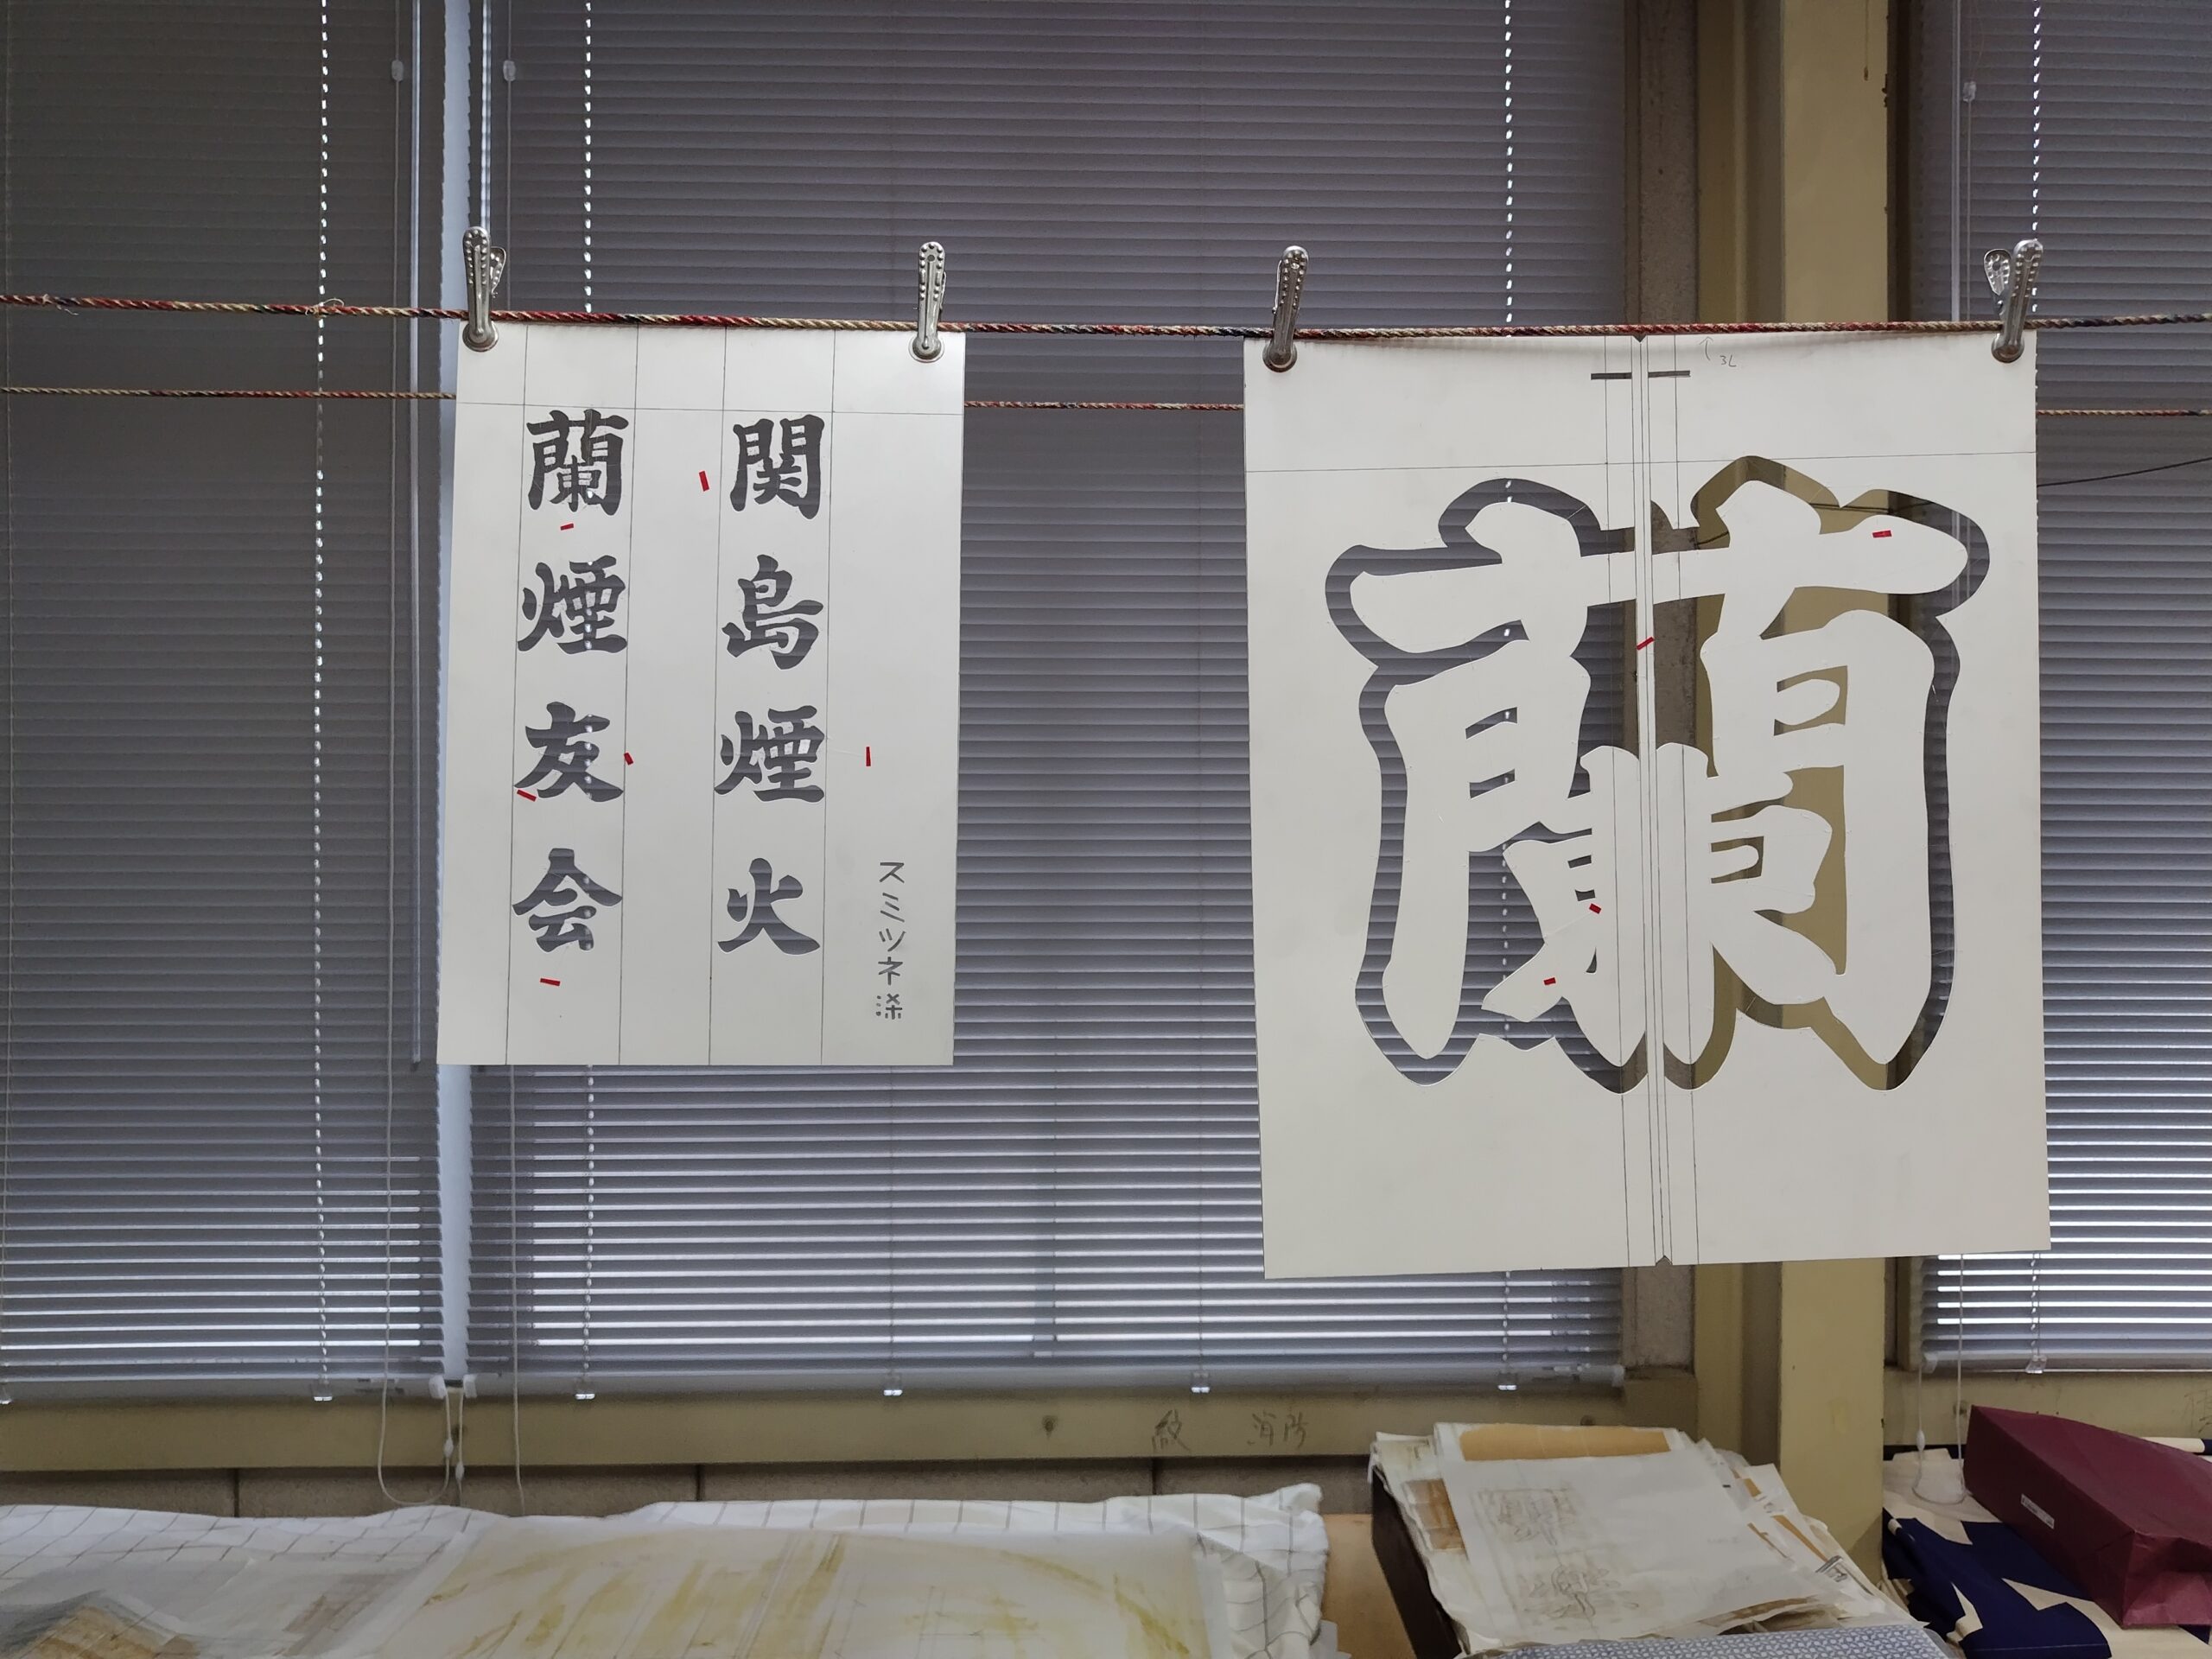 関島煙火
蘭煙友会
スミツネ染
蘭
3L